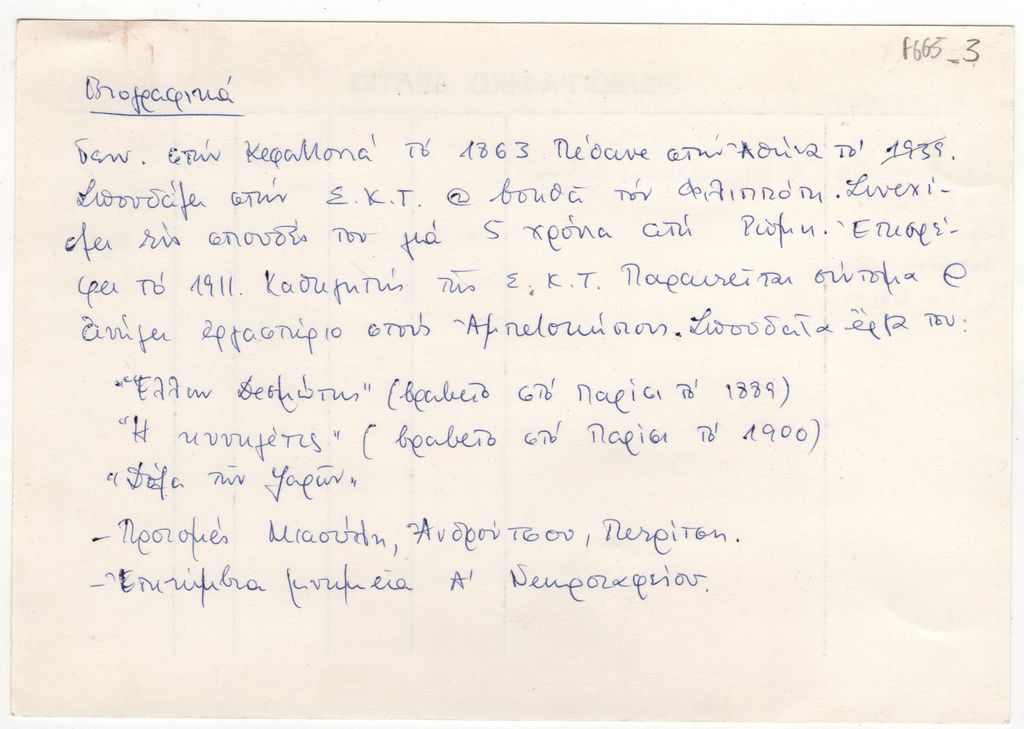 Ρ665_3
Βιογραφικά
Γενν. στήν Κεφαλλονιά τό 1863 Πέθανε στήν Ἀθήνα τό 1939.
Σπουδάζει στήν Σ.Κ.Τ. @ βοηθᾶ τόν Φιλιππότη. Συνεχί-
ζει τίς σπουδές του γιά 5 χρόνια στή Ρώμη. Ἐπιστρέ-
φει τό 1911. Καθηγητής τῆς Σ.Κ.Τ. Παραιτεῖται σύντομα @
ἀνοίγει ἐργαστήριο στούς Ἀμπελοκήπους. Σπουδαῖα ἔργα του:
"Ἕλλην Δεσμώτης" (βραβεῖο στό Παρίσι τό 1889)
"Ἡ κυνηγέτις" (βραβεῖο στό Παρίσι τό 1900)
"Δόξα τῶν Ψαρῶν"
- Προτομές Μιαούλη, Ἀνδρούτσου, Πετρίτση.
- Ἐπιτύμβια μνημεῖα Α' Νεκροταφείου.